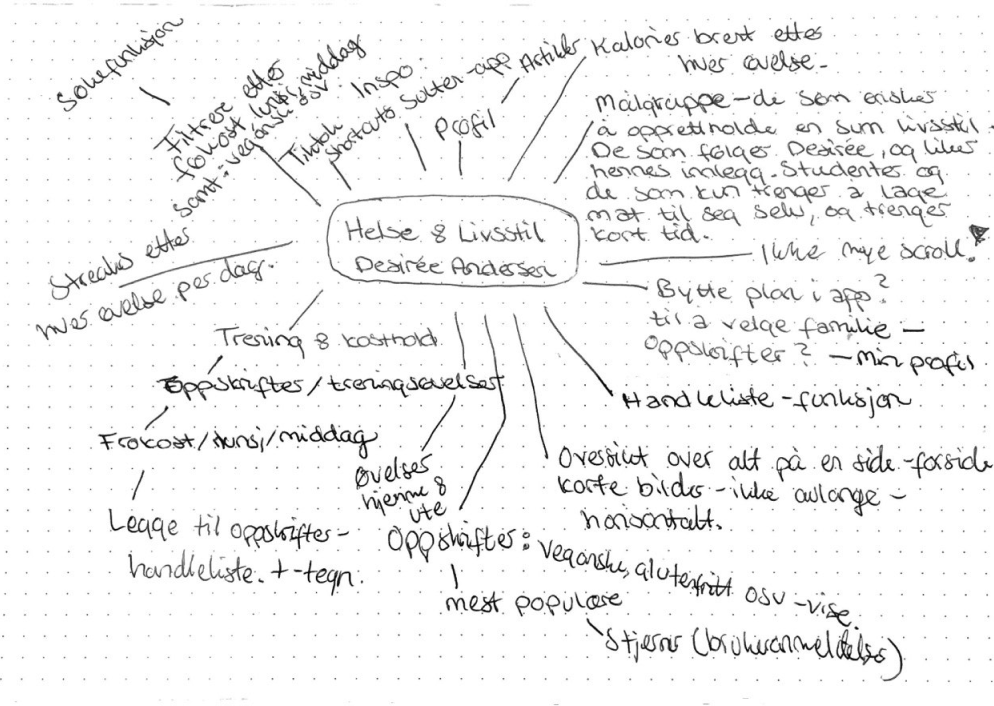 Søkefunksjon
Filtrere etter
frokost lunsj, middag
samt: vegansk osv.
Tiktok
shortcuts
Inspo.
Sulten-app
Profil
Artikler
Kalorier brent etter
hver øvelse.
Målgruppe - de som ønsker
å opprettholde en sunn livsstil.
De som følger Desirée, og liker
hennes innlegg. Studenter og
de som kun trenger å lage
mat til seg selv, og trenger
kort tid.
Ikke mye scroll!
Bytte plan i app?
til å velge familie -
oppskrifter? - Min profil
Handleliste - funksjon
Oversikt over alt på en side - forside
korte bilder - ikke avlange -
horisontalt.
Helse & Livsstil
Desirée Andersen
Streaks etter
hver øvelse per dag.
Trening & kosthold.
Oppskrifter/treningsøvelser
Frokost/lunsj/middag
Legge til oppskrifter -
handleliste. + -tegn.
Øvelser
hjemme &
ute
Oppskrifter: veganske, glutenfritt osv - vise.
mest populære
Stjerner (brukeranmeldelser)